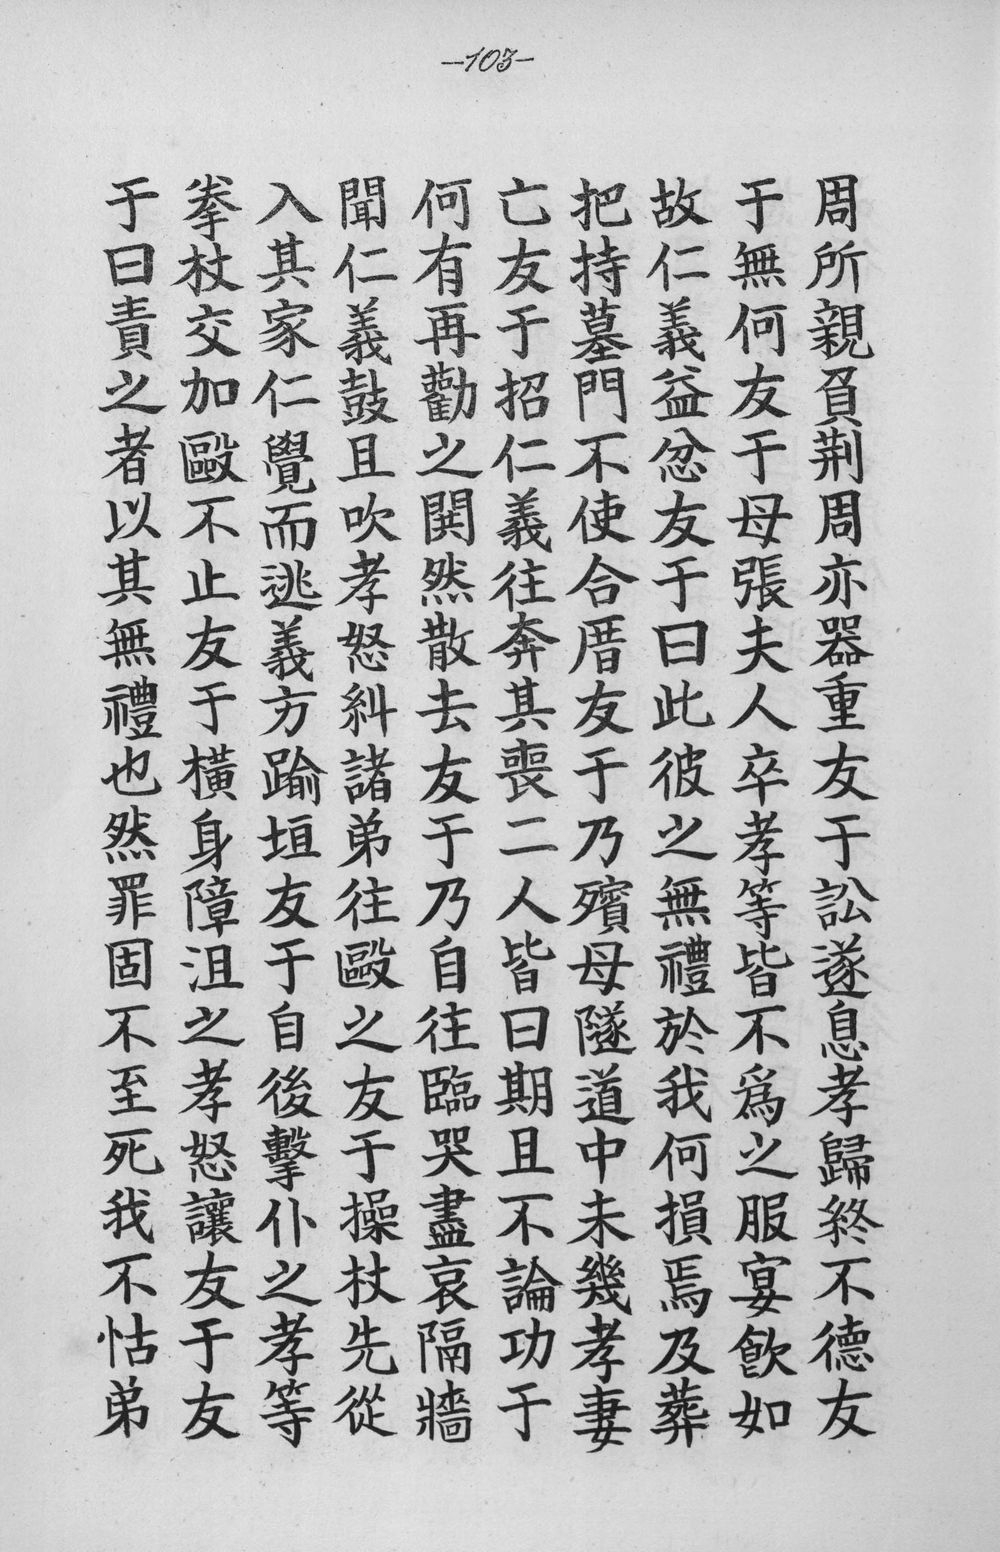 -103-
周所親負荆周亦器重友于訟遂息孝歸終不德友
于無何友于母張夫人卒孝等皆不爲之服宴飮如
故仁義益忿友于曰此彼之無禮於我何損焉及葬
把持墓門不使合厝友于乃殯母隧道中未幾孝妻
亡友于招仁義往奔其喪二人皆曰期且不論功于
何有再勸之閧然散去友于乃自往臨哭盡哀隔牆
聞仁義鼓且吹孝怒糾諸弟往毆之友于操杖先從
入其家仁覺而逃義方踰垣友于自後擊仆之孝等
拳杖交加毆不止友于橫身障沮之孝怒讓友于友
于曰責之者以其無禮也然罪固不至死我不怙弟